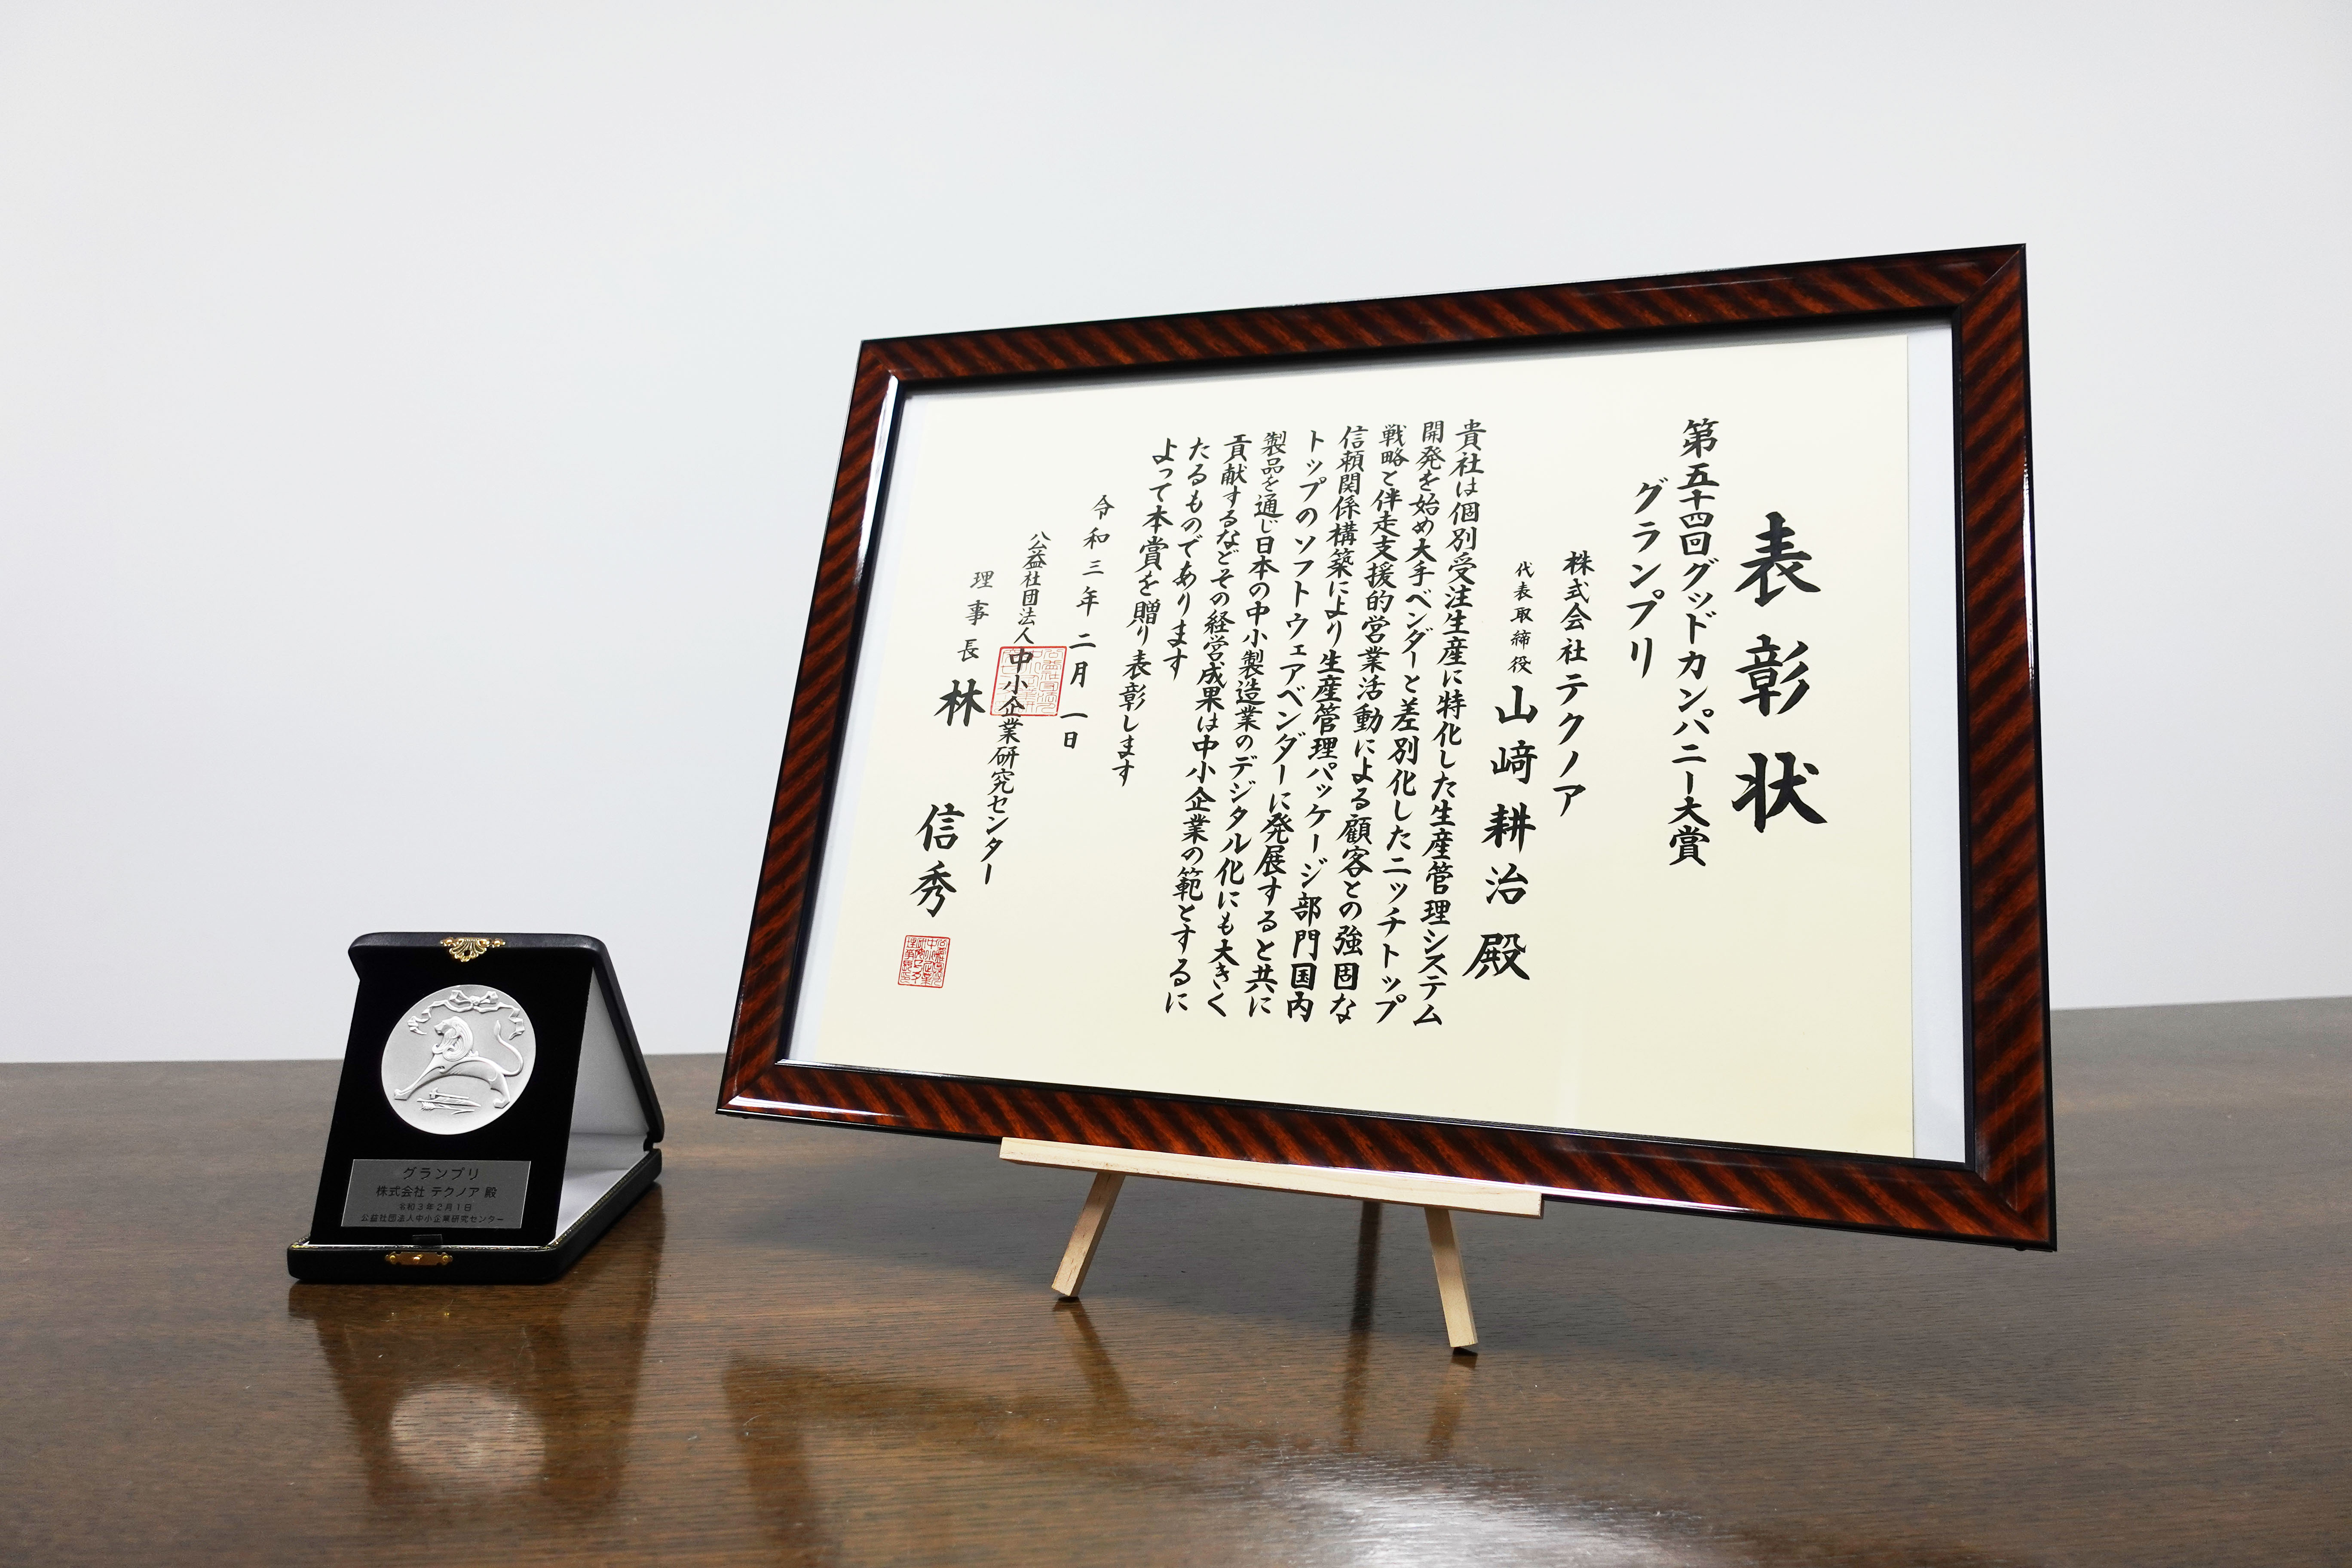 表彰状
第五十四回グッドカンパニー大賞
グランプリ
株式会社テクノア
代表取締役 山﨑耕治殿
貴社は個別受注生産に特化した生産管理システム
開発を始め大手ベンダーと差別化したニッチトップ
戦略と伴走支援的営業活動による顧客との強固な
信頼関係構築により生産管理パッケージ部門国内
トップのソフトウェアベンダーに発展すると共に
製品を通じ日本の中小製造業のデジタル化にも大きく
貢献するなどその経営成果は中小企業の範とするに
たるものであります
よって本賞を贈り表彰します
令和三年二月一日
公益社団法人中小企業研究センター
理事長 林 信秀
グランプリ
株式会社 テクノア 殿
令和3年2月1日
公益社団法人中小企業研究センター